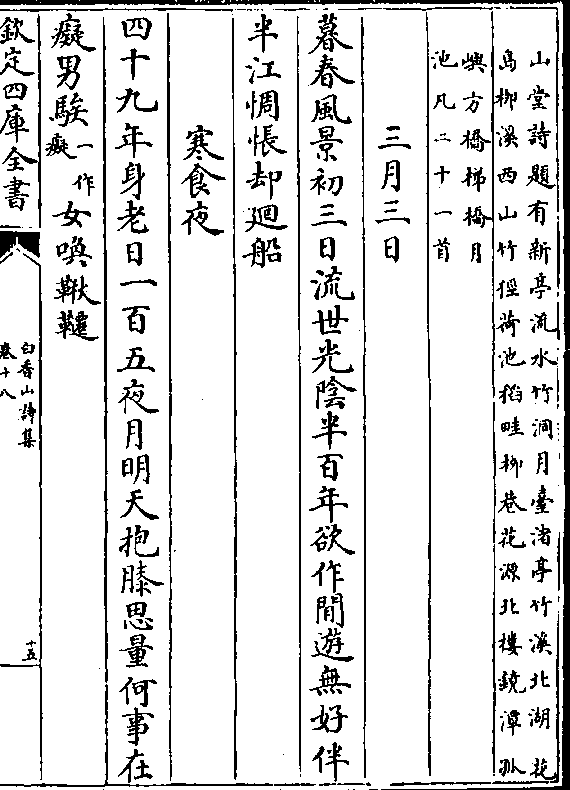 山堂詩題有新亭流水竹洞月臺渚亭竹溪北湖花
島栁溪西山竹徑荷池稻畦栁巷花源北樓鏡潭孤
嶼方橋梯橋月
池凡二十一首
三月三日
暮春風景初三日流世光陰半百年欲作閒遊無好伴
半江惆悵却廻船
寒食夜
四十九年身老日一百五夜月明天抱膝思量何事在
癡男騃一作癡女喚鞦韆
欽定四庫全書
白香山詩集
卷十八
十五